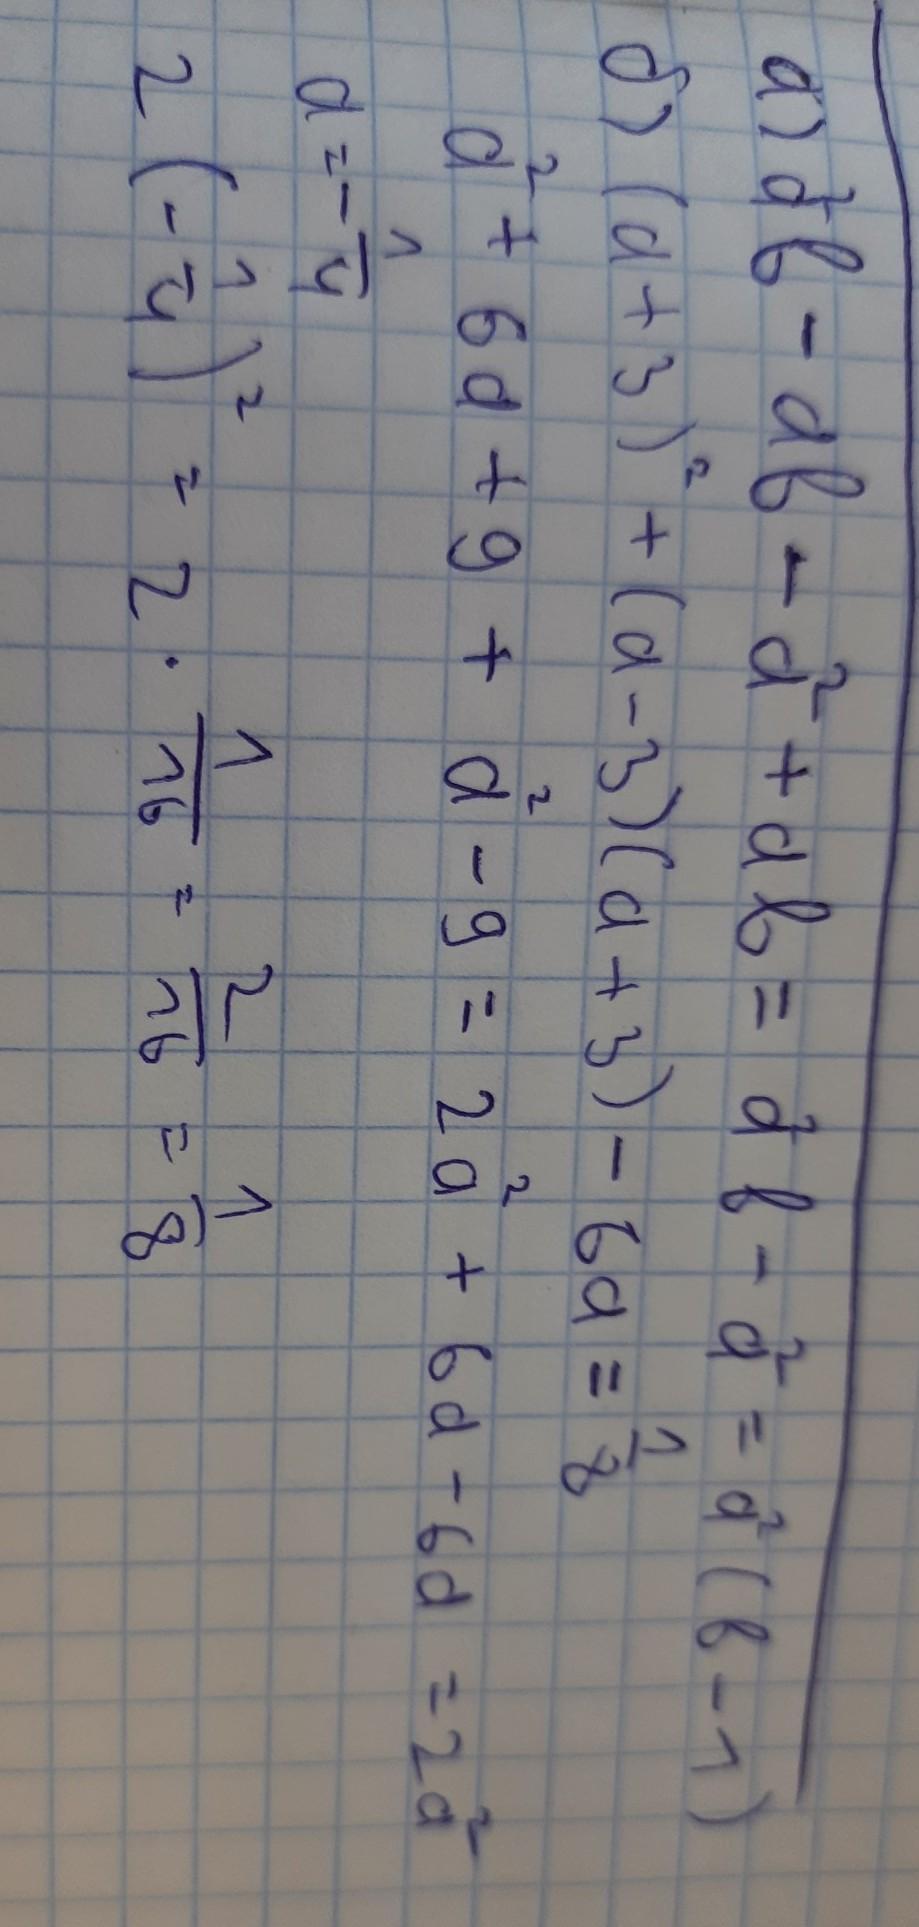 а) a²b - ab - a² + ab = a²b - a² = a²(b - 1)
б) (a+3)² + (a-3)(a+3) - 6a = 1/8
a² + 6a + 9 + a² - 9 = 2a² + 6a - 6a = 2a²
a = - 1/4
2(- 1/4)² = 2 · 1/16 = 2/16 = 1/8